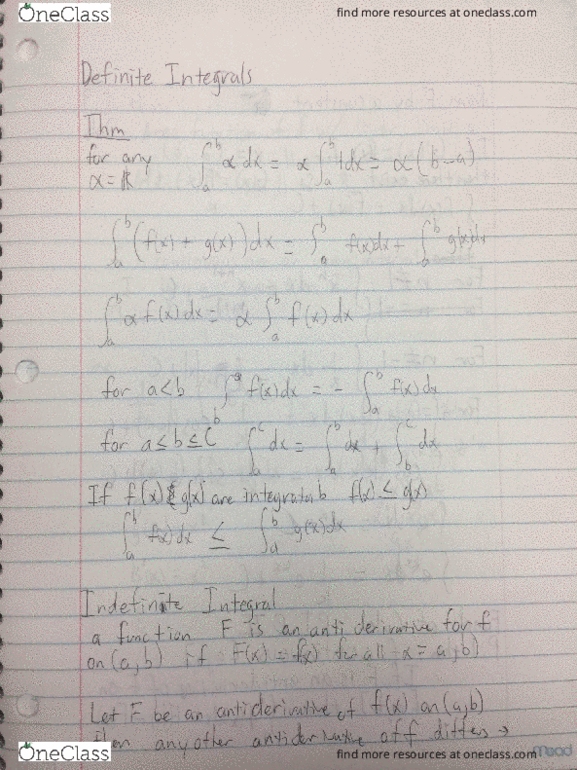 OneClass
find more resources at oneclass.com
Definite Integrals
Thm
for any ∫_a^b α dx = α ∫_a^b 1dx = α(b-a)
α = ℝ
∫_a^b (f(x) + g(x))dx = ∫_a^b f(x)dx + ∫_a^b g(x)dx
∫_a^b α f(x) dx = α ∫_a^b f(x) dx
for a<b ∫_b^a f(x)dx = - ∫_a^b f(x) dx
for a≤b≤C ∫_a^c dx = ∫_a^b dx + ∫_b^c dx
If f(x) & g(x) are f(x) ≤ g(x)
∫_a^b f(x) dx ≤ ∫_a^b g(x)dx
Indefinite Integral
a function F is an anti derivative for f
on (a,b) if F(x) = f(x) for all x = a, b)
Let F be an antiderivative of f(x) on (a,b)
then any other antiderivative of f differs →
OneClass
find more resources at oneclass.com
Mead